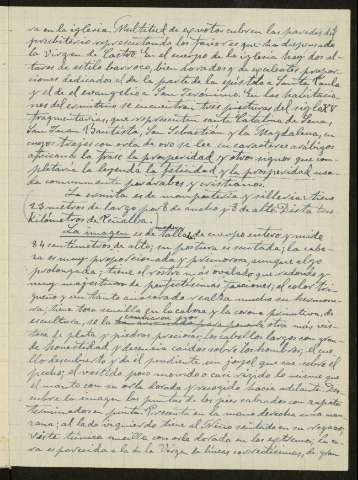 va en la iglesia. Multitud de exvotos cubren las paredes del
presbiterio representando los favores que ha dispensado
la Virgen de Castro. En el cuerpo de la iglesia hay dos al-
tares de estilo barroco, bien dorados y de excelentes propor-
ciones dedicados el de la parte de la epístola a Santa Paula
y el de el evangelio a San Jerónimo. En las habitacio-
nes del ermitaño se encuentran tres pinturas del siglo XV
fragmentarias, que representan santa Catalina de Sena,
San Juan Bautista, San Sebastián y la Magdalena, en
cuyos trajes con orla de oro se lee en caracteres arábigos
africanos la frase la prosperidad y otros signos que com-
pletaría la leyenda la felicidad y la prosperidad usa-
da comunmente por árabes y cristianos.
La ermita es de mampostería y sillería: tiene
23 metros de largo por 6 de ancho y 8 de alto. Dista tres
kilómetros de
La imagen es de talla de cuerpo entero y mide
84 centímetros de alto; su postura es sentada; la cabe-
za es muy proporcionada y primorosa, aunque algo
prolongada; tiene el rostro más ovalado que redondo y
muy magestuoso de perfectísimas facciones; el color tri-
gueño y un tanto amorenado y realza mucho su hermosu-
ra; tiene toca sencilla en la cabeza y la corona primitiva, de
escultura, se la otra más vis-
tosa de plata y piedras preciosas; los cabellos largos con gran-
de honestidad y decencia caidos sobre los hombros; el cue-
llo descubierto y de él pendiente un joyel que cae sobre el
pecho; el vestido poco movido o casi rígido lo mismo que
el manto con su orla dorada y recogido hacia adelante. Des-
cubre la imagen las puntas de los pies calzados con zapato
terminados en punta. Presenta en la mano derecha una man-
zana; al lado izquierdo tiene al Niño sentado en su regazo,
viste túnica sencilla con orla dorada en los extremos, la ca-
ra es parecida a la de la Virgen de líneas correctísimas, de gran